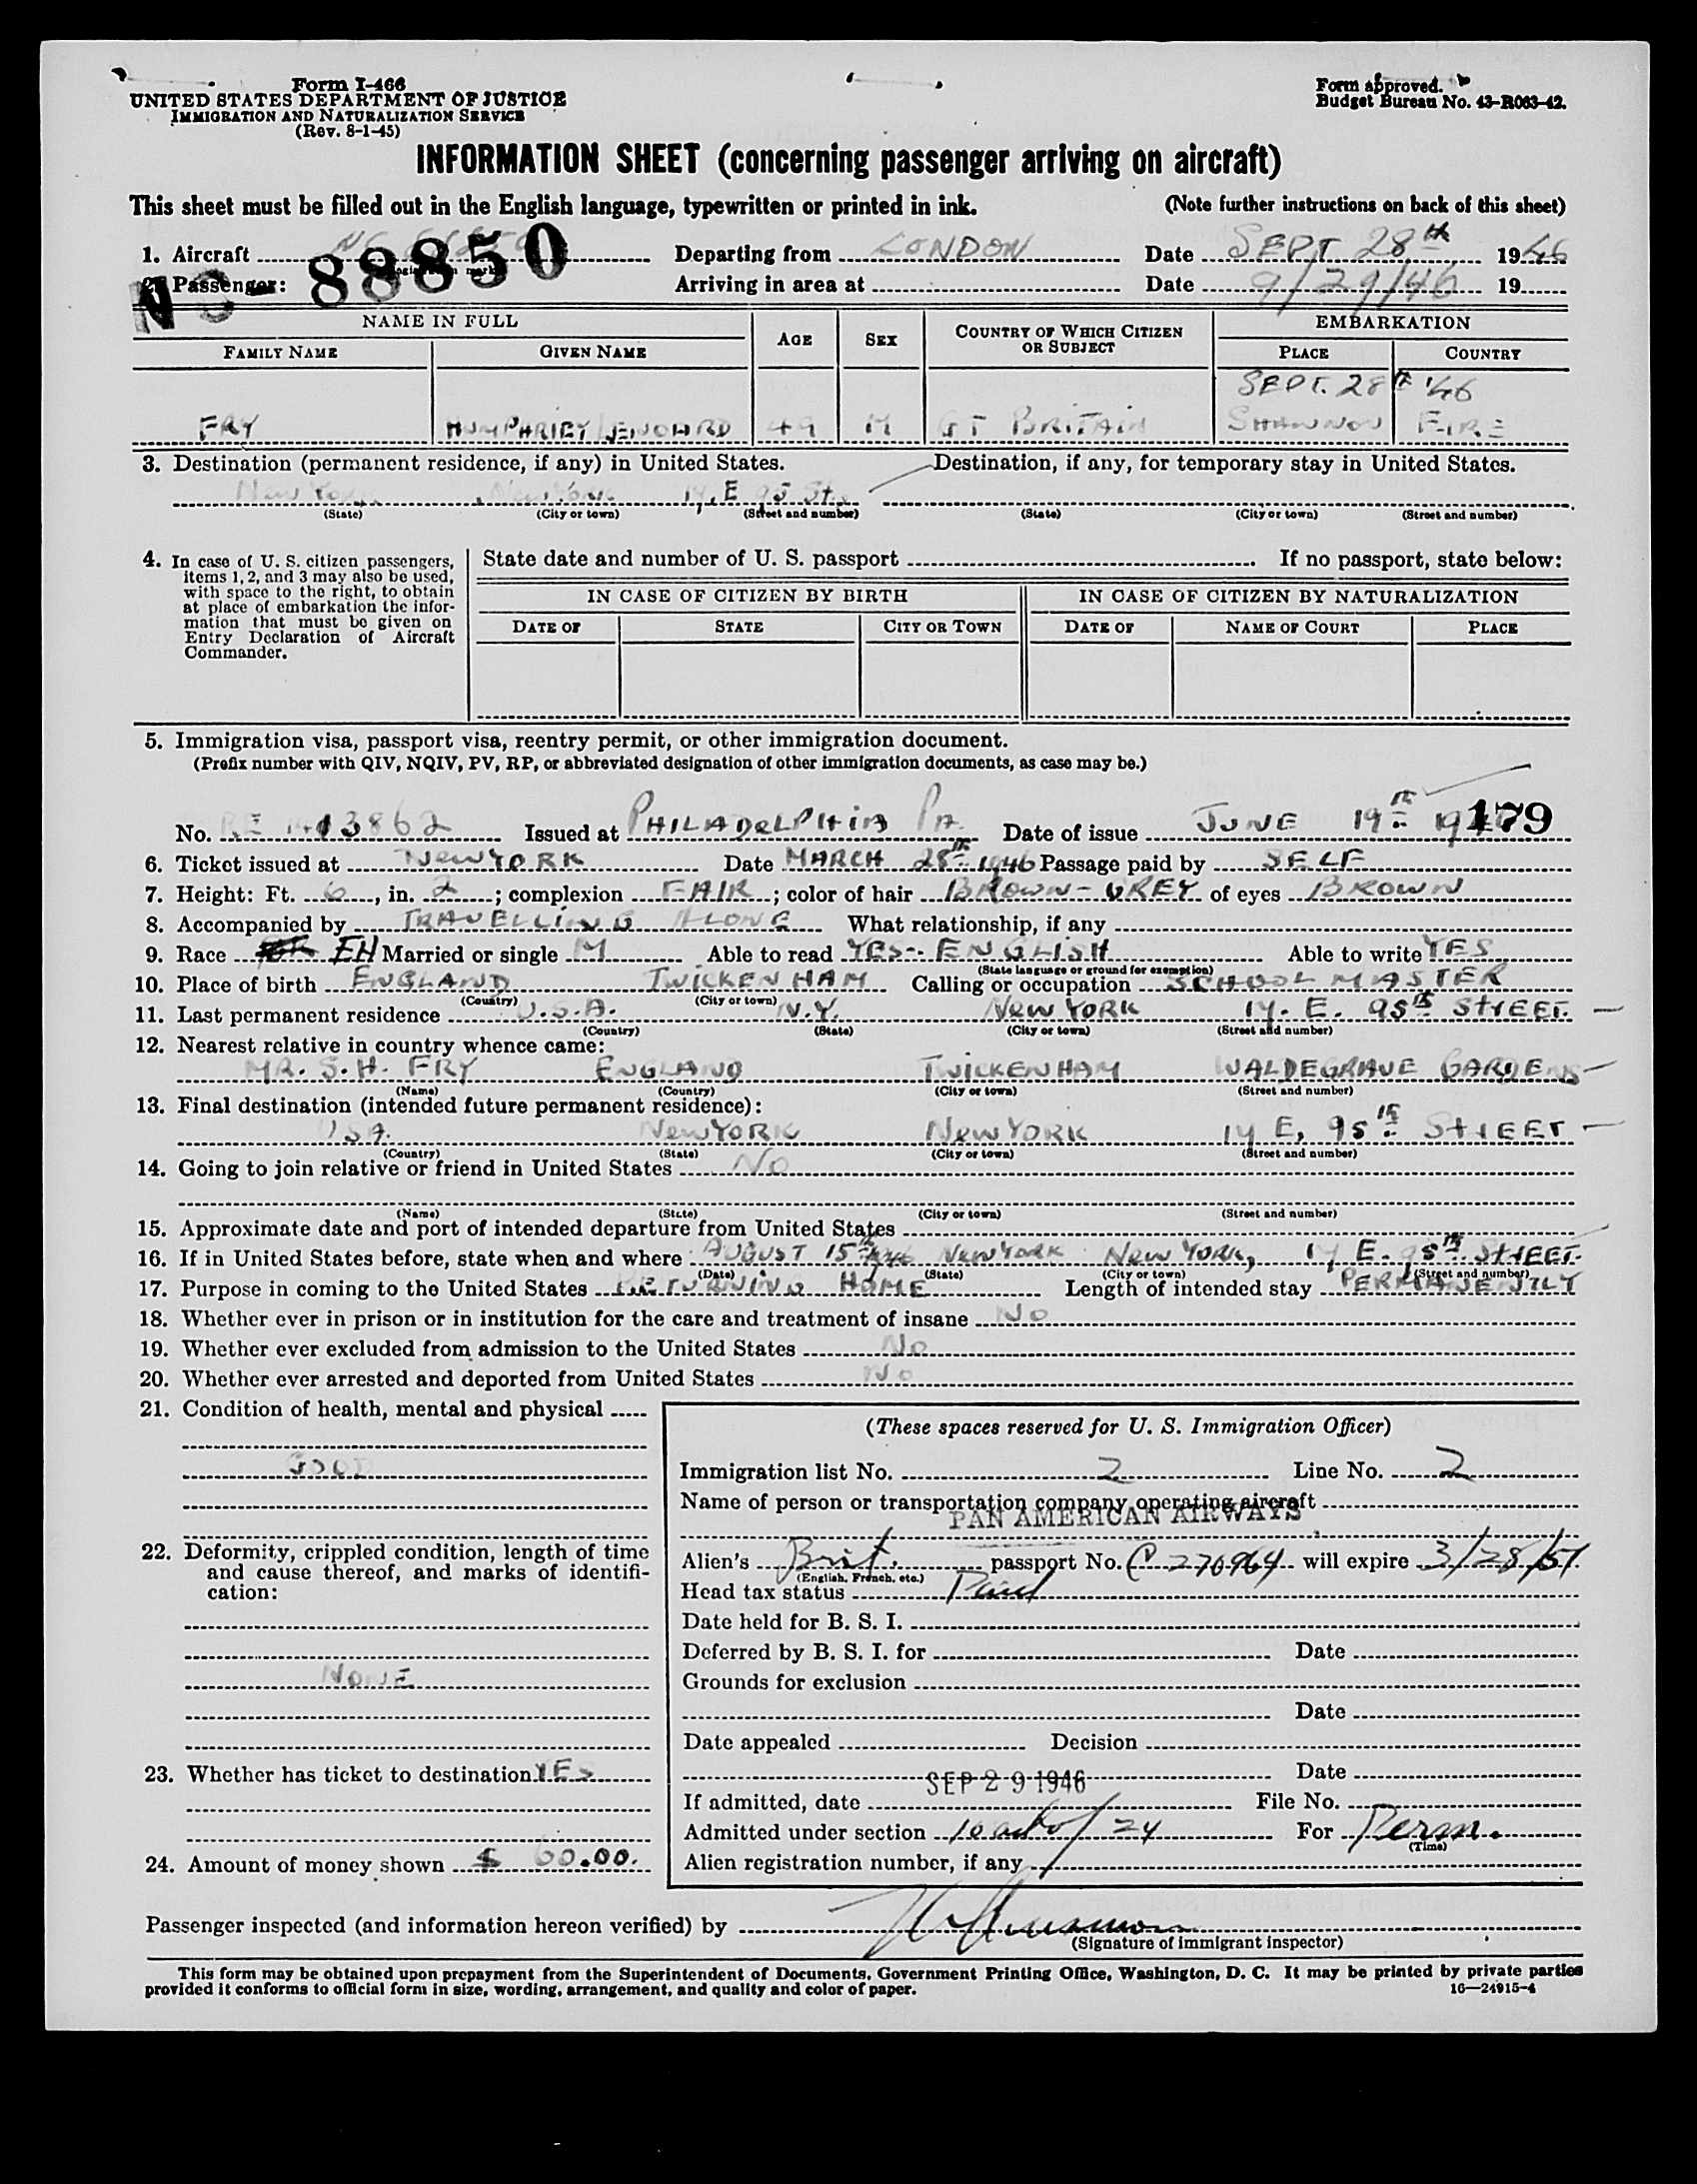 Form I-466
UNITED STATES DEPARTMENT OF JUSTICE
IMMIGRATION AND NATURALIZATION SERVICE
(Rev. 8-1-45)
Form approved.
Budget Bureau No. 43-R063-42.
INFORMATION SHEET (concerning passenger arriving on aircraft)
This sheet must be filled out in the English language, typewritten or printed in ink. (Note further instructions on back of this sheet)
1. Aircraft NC 88850 Departing from LONDON Date SEPT 28th 1946
2. Passenger: Arriving in area at Date 9/29/46 19
NAME IN FULL AGE SEX COUNTRY OF WHICH CITIZEN OR SUBJECT EMBARKATION
FAMILY NAME GIVEN NAME PLACE COUNTRY
SEPT. 28th '46
FRY 49 M GT BRITAIN SHANNON EIRE
3. Destination (permanent residence, if any) in United States. Destination, if any, for temporary stay in United States.
New York, New York 14, E 95 St.
(State) (City or town) (Street and number) (State) (City or town) (Street and number)
4. In case of U. S. citizen passengers, items 1, 2, and 3 may also be used, with space to the right, to obtain at place of embarkation the information that must be given on Entry Declaration of Aircraft Commander.
State date and number of U. S. passport If no passport, state below:
IN CASE OF CITIZEN BY BIRTH IN CASE OF CITIZEN BY NATURALIZATION
DATE OF STATE CITY OR TOWN DATE OF NAME OF COURT PLACE
5. Immigration visa, passport visa, reentry permit, or other immigration document.
(Prefix number with QIV, NQIV, PV, RP, or abbreviated designation of other immigration documents, as case may be.)
No. 13862 Issued at PHILADELPHIA PA. Date of issue JUNE 19th 179
6. Ticket issued at NEW YORK Date MARCH 28th 1946 Passage paid by SELF
7. Height: Ft. 6, in. 2; complexion FAIR; color of hair BROWN-GREY of eyes BROWN
8. Accompanied by TRAVELLING ALONE What relationship, if any
9. Race EN Married or single M Able to read YES - ENGLISH Able to write YES
(State language or ground for exemption)
10. Place of birth ENGLAND TWICKENHAM Calling or occupation SCHOOL MASTER
(Country) (City or town)
11. Last permanent residence U.S.A. N.Y. NEW YORK 14. E. 95th STREET.
(Country) (State) (City or town) (Street and number)
12. Nearest relative in country whence came:
MR. S. H. FRY ENGLAND TWICKENHAM WALDEGRAVE GARDENS
(Name) (Country) (City or town) (Street and number)
13. Final destination (intended future permanent residence):
USA. NEW YORK NEW YORK 14 E. 95th STREET
(Country) (State) (City or town) (Street and number)
14. Going to join relative or friend in United States NO
(Name) (State) (City or town) (Street and number)
15. Approximate date and port of intended departure from United States
16. If in United States before, state when and where AUGUST 15th 1946 NEW YORK NEW YORK, 14 E. 95th STREET.
(Date) (State) (City or town) (Street and number)
17. Purpose in coming to the United States RETURNING HOME Length of intended stay PERMANENTLY
18. Whether ever in prison or in institution for the care and treatment of insane NO
19. Whether ever excluded from admission to the United States NO
20. Whether ever arrested and deported from United States NO
21. Condition of health, mental and physical
GOOD
22. Deformity, crippled condition, length of time and cause thereof, and marks of identification:
NONE
23. Whether has ticket to destination YES
24. Amount of money shown $ 60.00.
(These spaces reserved for U. S. Immigration Officer)
Immigration list No. 2 Line No. 2
Name of person or transportation company operating aircraft
PAN AMERICAN AIRWAYS
Alien's Brit. passport No. C 270964 will expire 3/28/51.
(English, French, etc.)
Head tax status Paid
Date held for B. S. I.
Deferred by B. S. I. for Date
Grounds for exclusion
Date
Date appealed Decision
Date
SEP 29 1946
If admitted, date File No.
Admitted under section 10 act of 24 For Perm.
(Time)
Alien registration number, if any
Passenger inspected (and information hereon verified) by
(Signature of immigrant inspector)
This form may be obtained upon prepayment from the Superintendent of Documents, Government Printing Office, Washington, D. C. It may be printed by private parties
provided it conforms to official form in size, wording, arrangement, and quality and color of paper. 16—24915-4